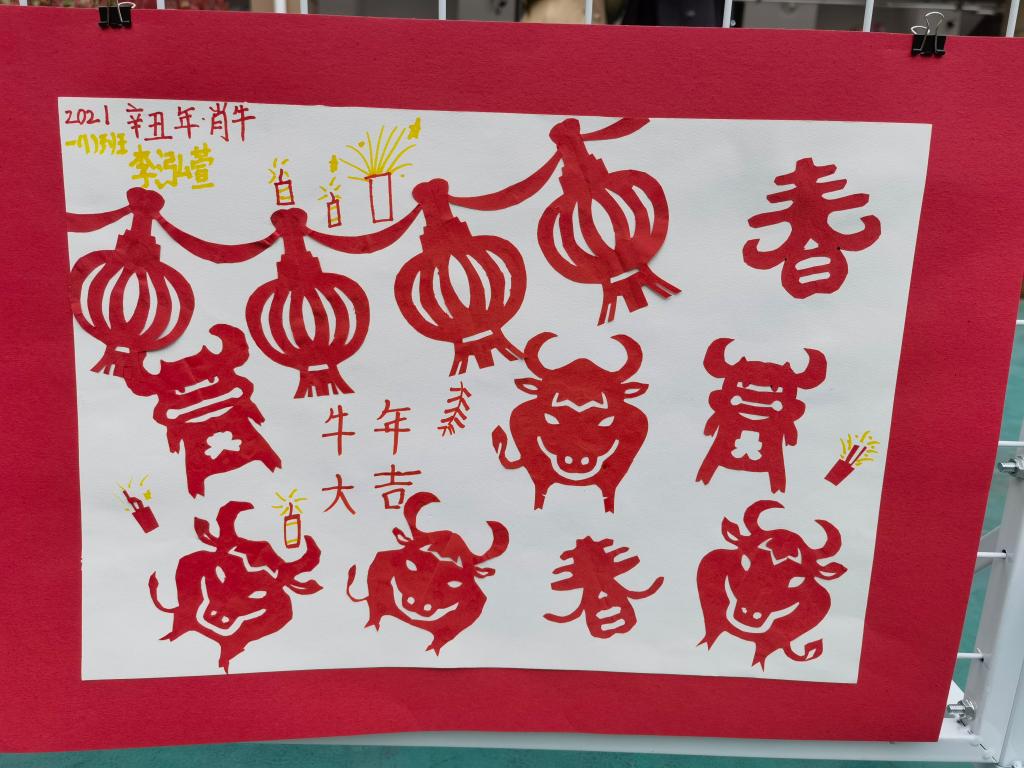 2021 辛丑年·肖牛
一(7)班
李泓萱
春
牛年
大吉
春